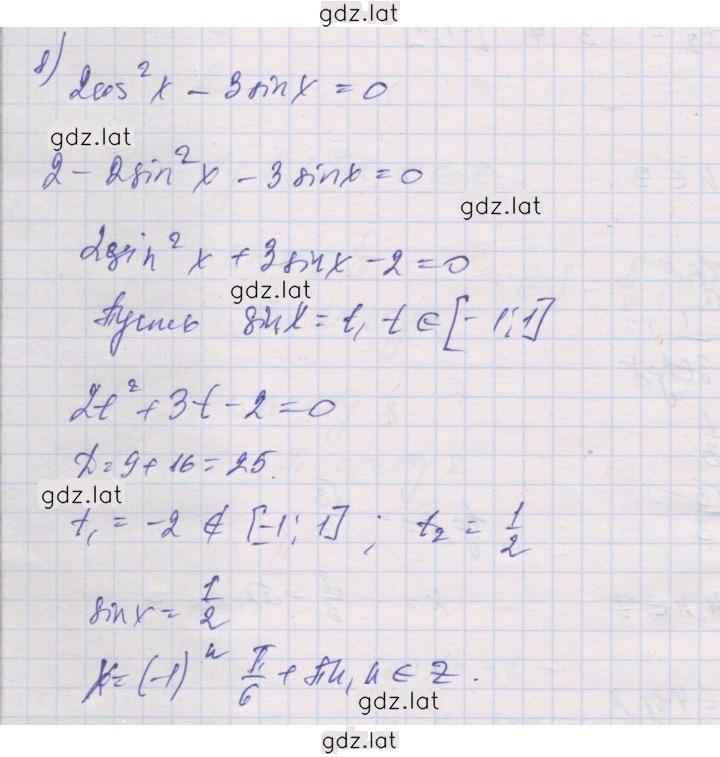 gdz.lat
8)
2cos²x – 3sinx = 0
gdz.lat
2 – 2sin²x – 3sinx = 0
gdz.lat
2sin²x + 3sinx – 2 = 0
gdz.lat
Пусть sinx = t, t ∈ [-1; 1]
2t² + 3t – 2 = 0
D = 9 + 16 = 25.
gdz.lat
t₁ = -2 ∉ [-1; 1] ; t₂ = 1/2
sinx = 1/2
x = (-1)ⁿ π/6 + πn, n ∈ Z.
gdz.lat
gdz.lat